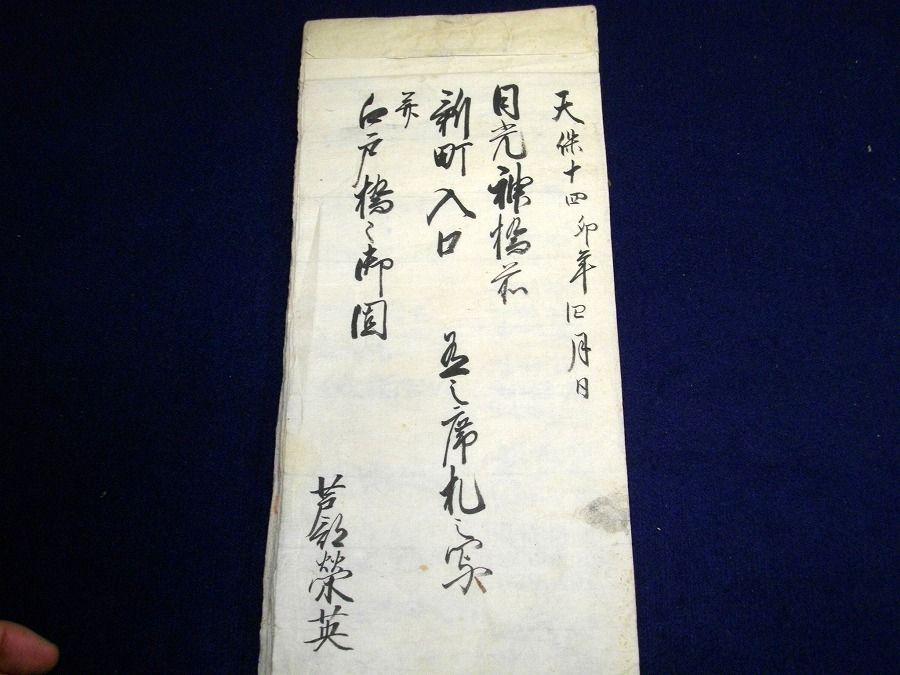 天保十四卯年四月日
日光神橋前
新町入口
之席札之写
并
江戸橋之御固
芦部榮英